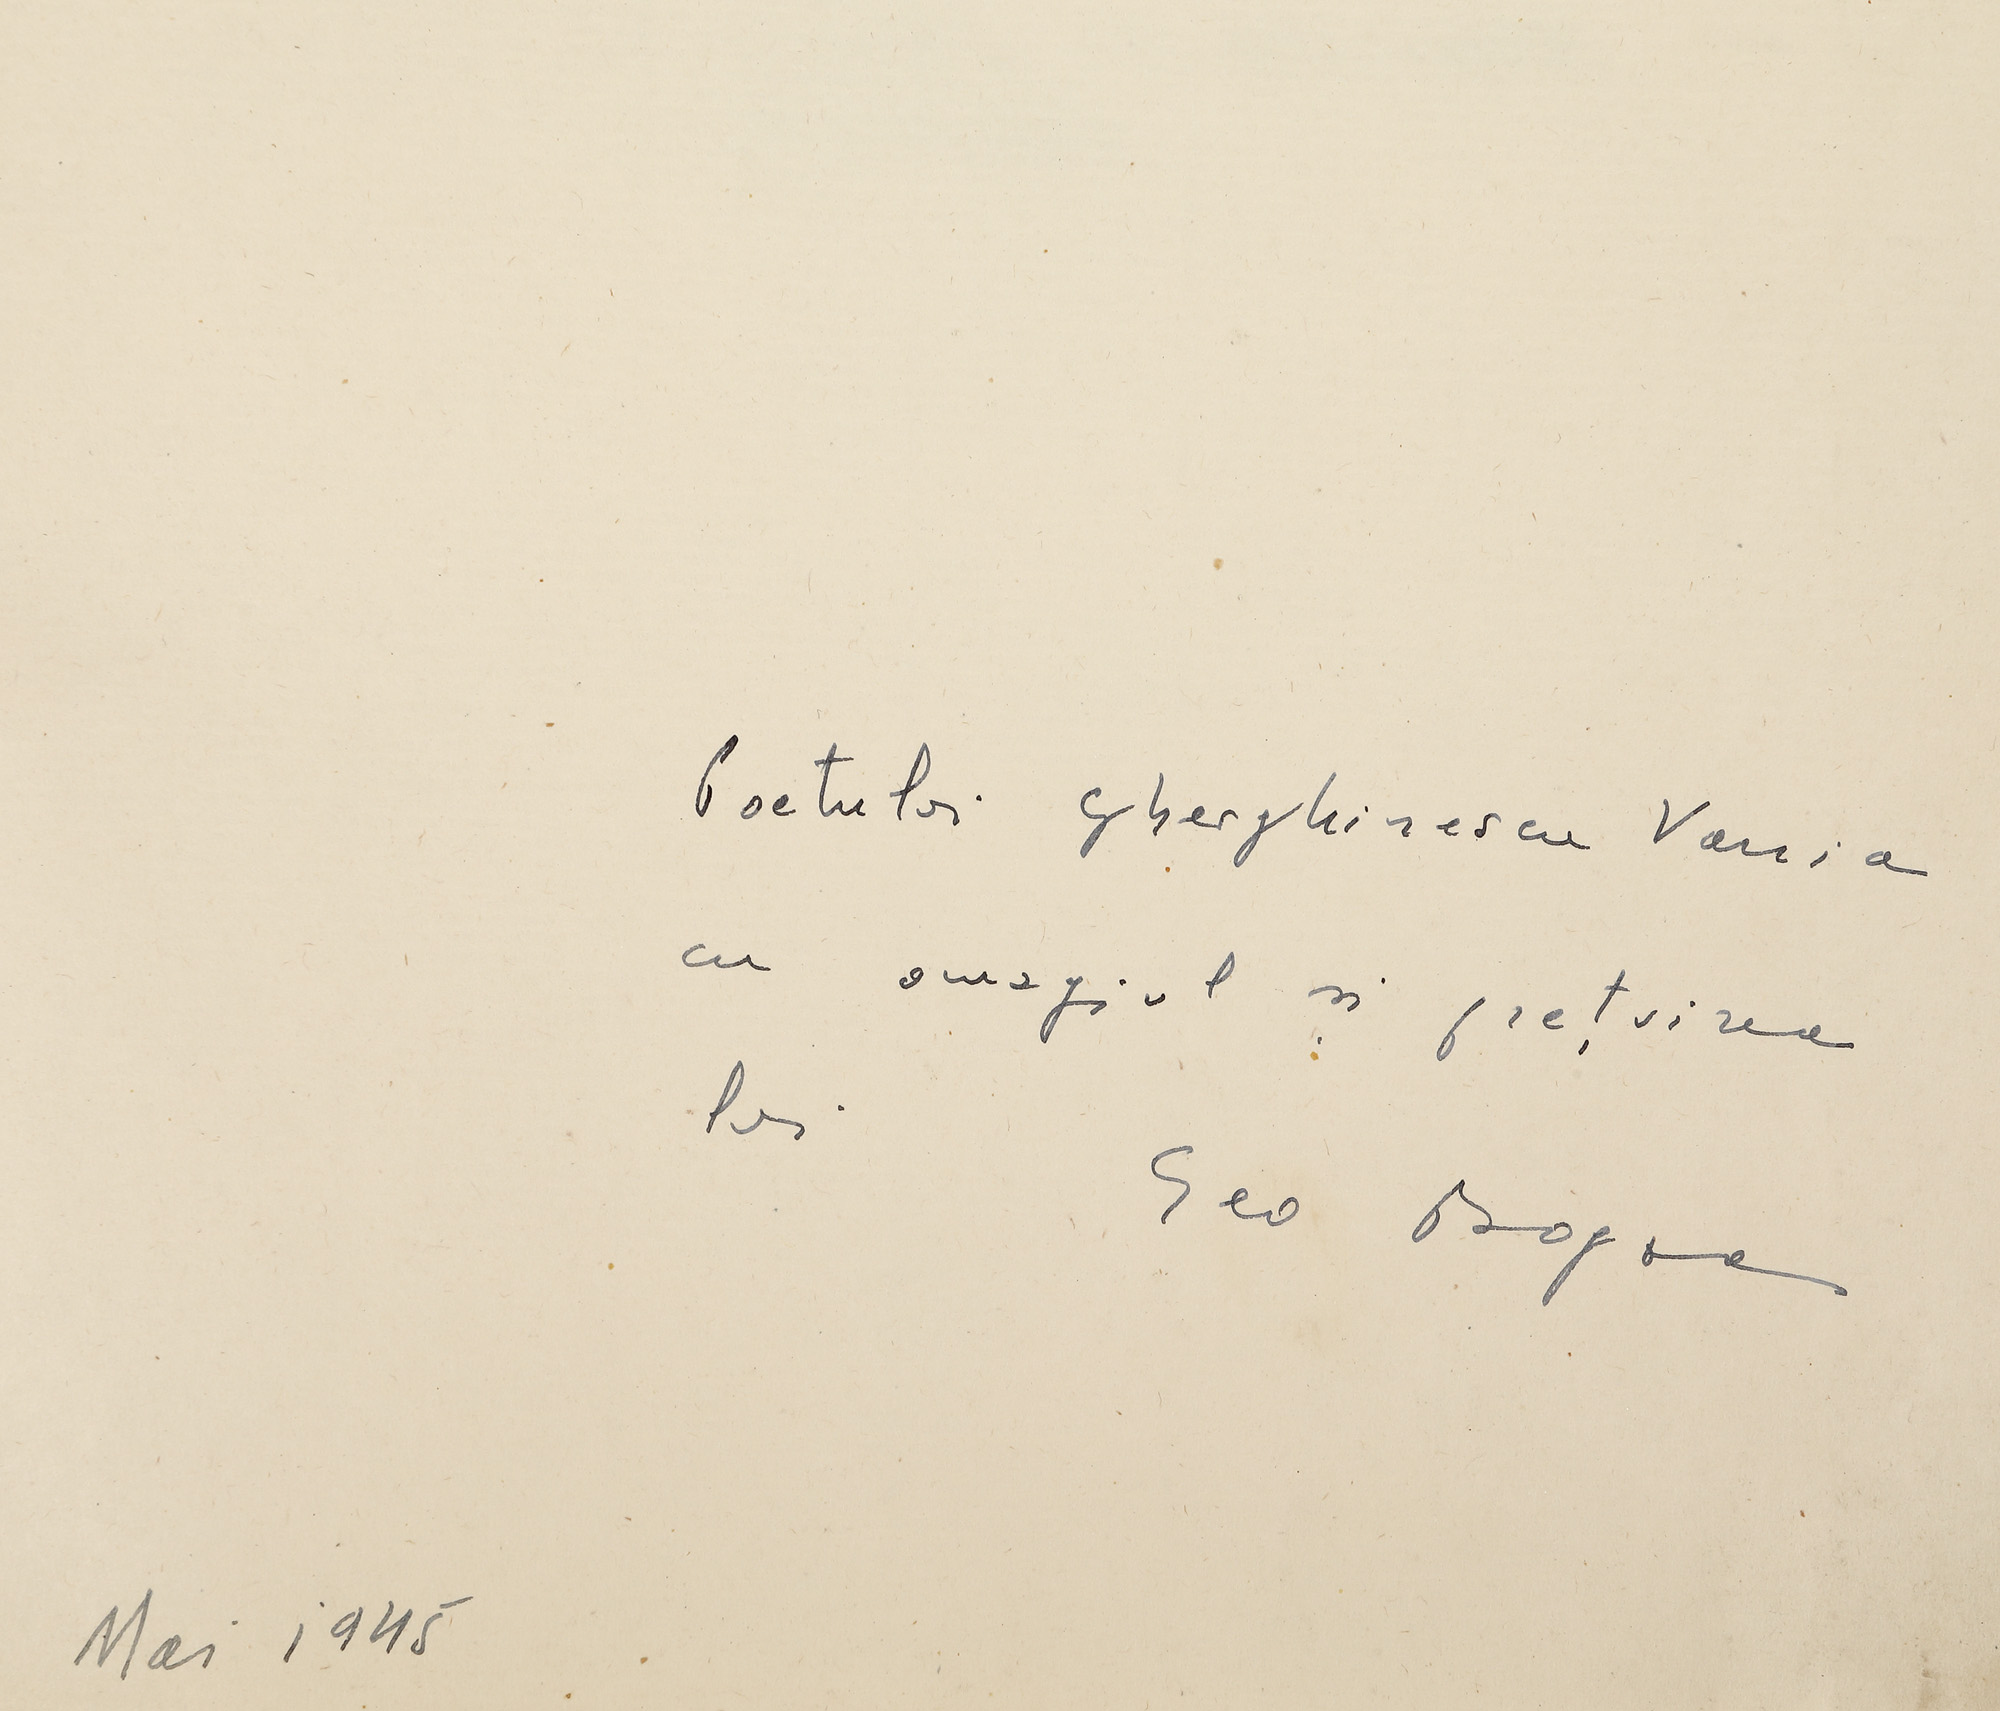 Poetului Gherghinescu Vania
cu omagiul și prețuirea
lui
Geo Bogza
Mai 1945